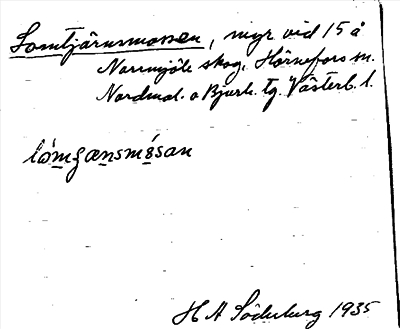 Lomtjärnsmossen, myr vid 15 å
Norrmjöle skog, Hörnefors sn.
Nordmal. o Bjurh. tg. Västerb. l.
lómʒænsmósan
H A Söderberg 1935